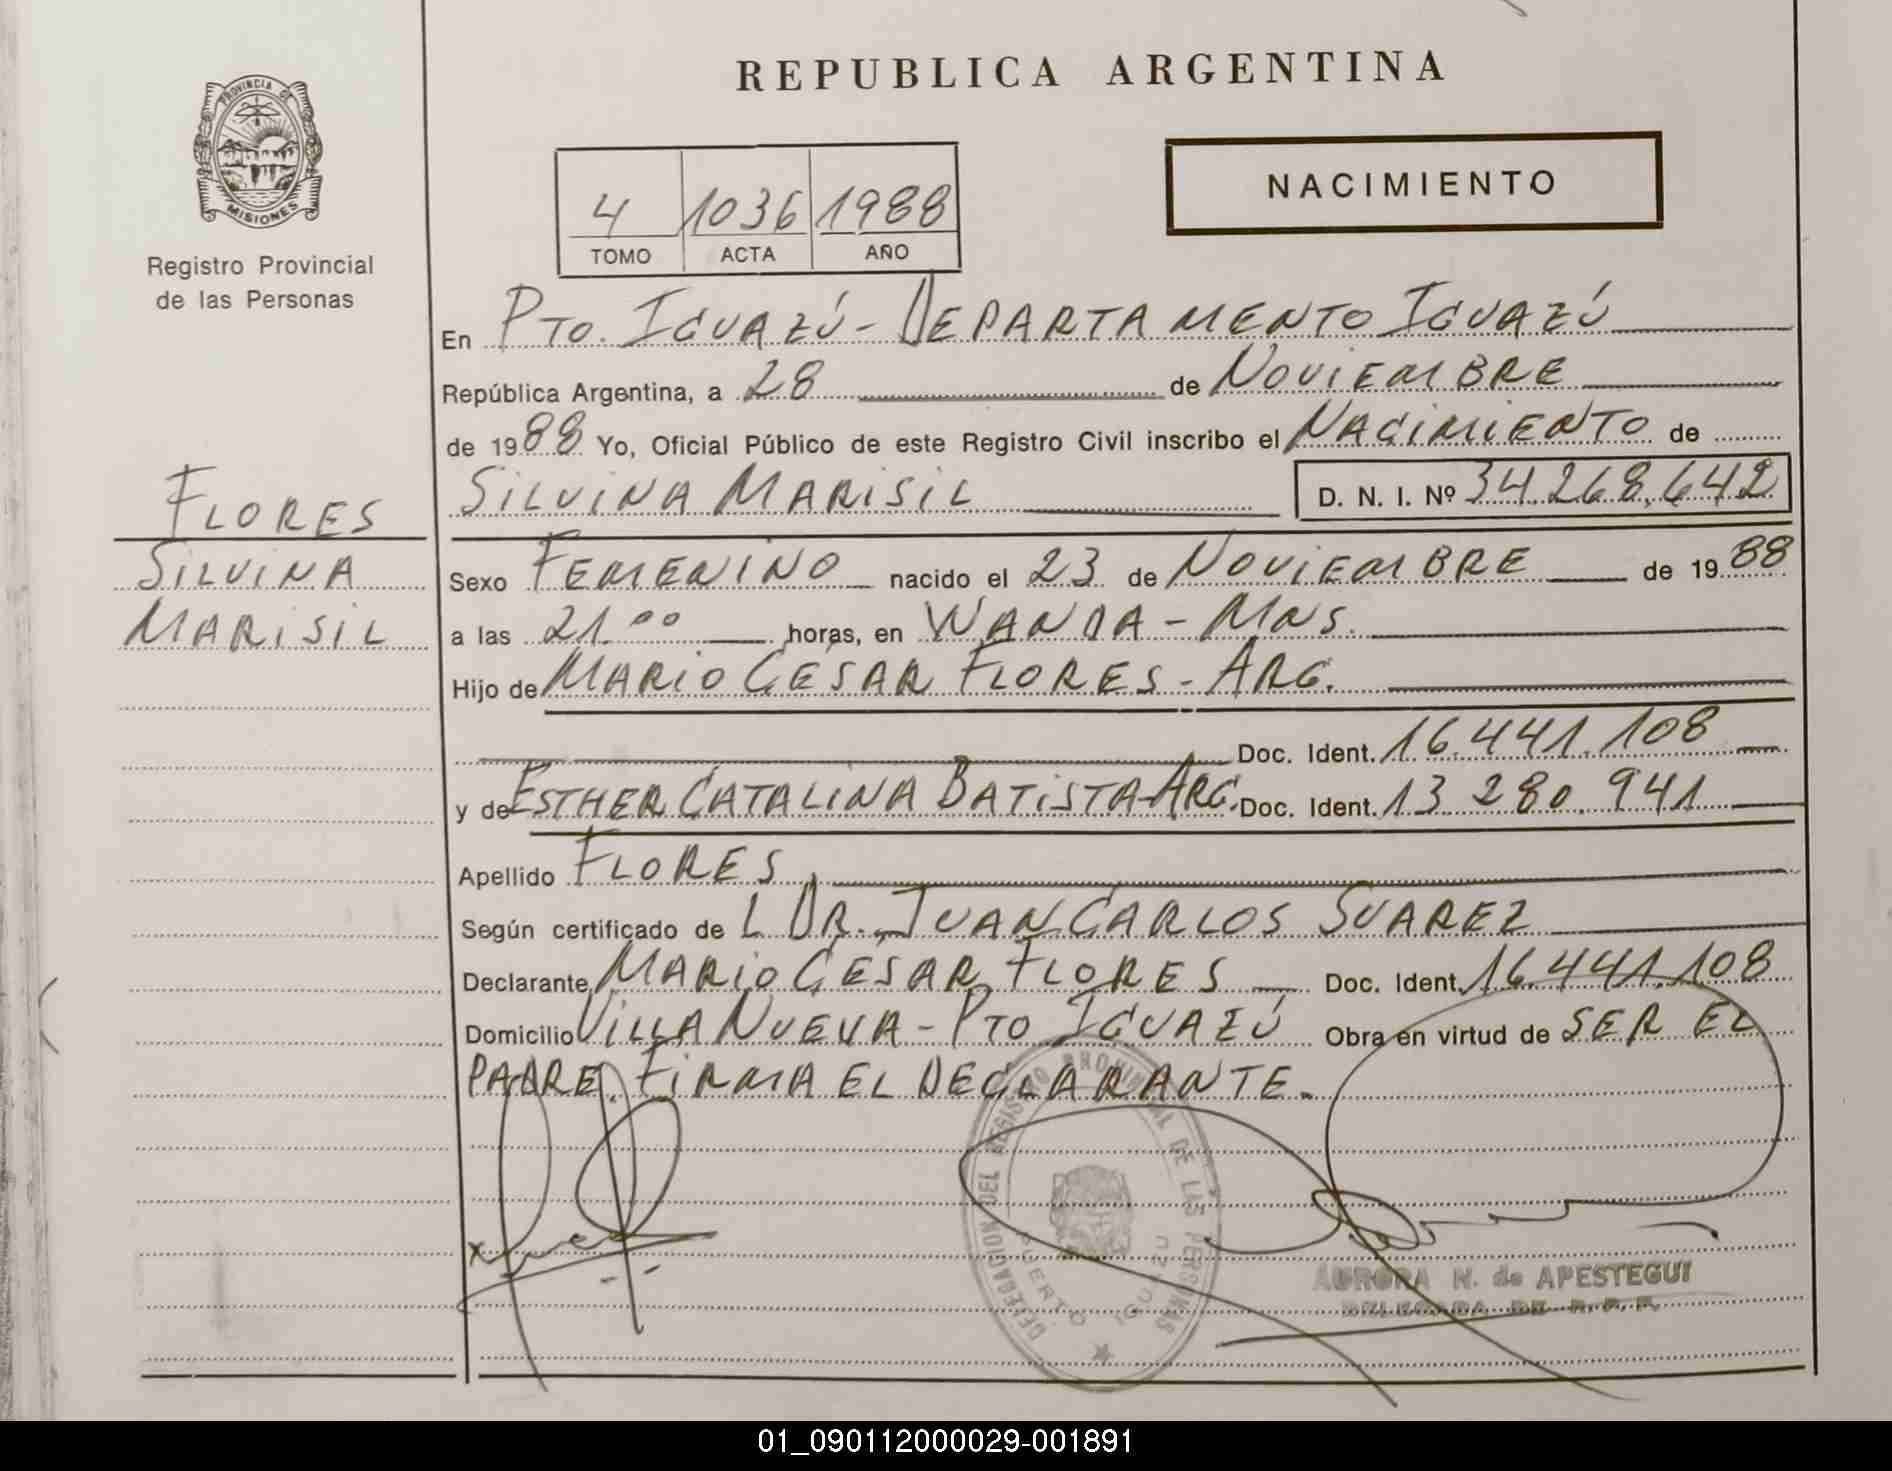 REPUBLICA ARGENTINA
PROVINCIA DE
MISIONES
Registro Provincial
de las Personas
NACIMIENTO
4 1036 1988
TOMO ACTA AÑO
En PTO. IGUAZÚ - DEPARTAMENTO IGUAZÚ
República Argentina, a 28 de NOVIEMBRE
de 1988 Yo, Oficial Público de este Registro Civil inscribo el NACIMIENTO de
SILVINA MARISIL D. N. I. Nº 34.268.642
FLORES
SILVINA
MARISIL
Sexo FEMENINO nacido el 23 de NOVIEMBRE de 1988
a las 21.00 horas, en WANDA - MNS.
Hijo de MARIO CESAR FLORES - ARG.
Doc. Ident. 16.441.108
y de ESTHER CATALINA BATISTA - ARG. Doc. Ident. 13 280.941
Apellido FLORES
Según certificado de L DR. JUAN CARLOS SUAREZ
Declarante MARIO CESAR FLORES Doc. Ident. 16.441.108
Domicilio VILLA NUEVA - PTO IGUAZÚ Obra en virtud de SER EL
PADRE. FIRMA EL DECLARANTE.
DELEGACION DEL REGISTRO PROVINCIAL DE LAS PERSONAS
PUERTO IGUAZU
AURORA N. de APESTEGUI
DELEGADA DE R. P. P.
01_090112000029-001891